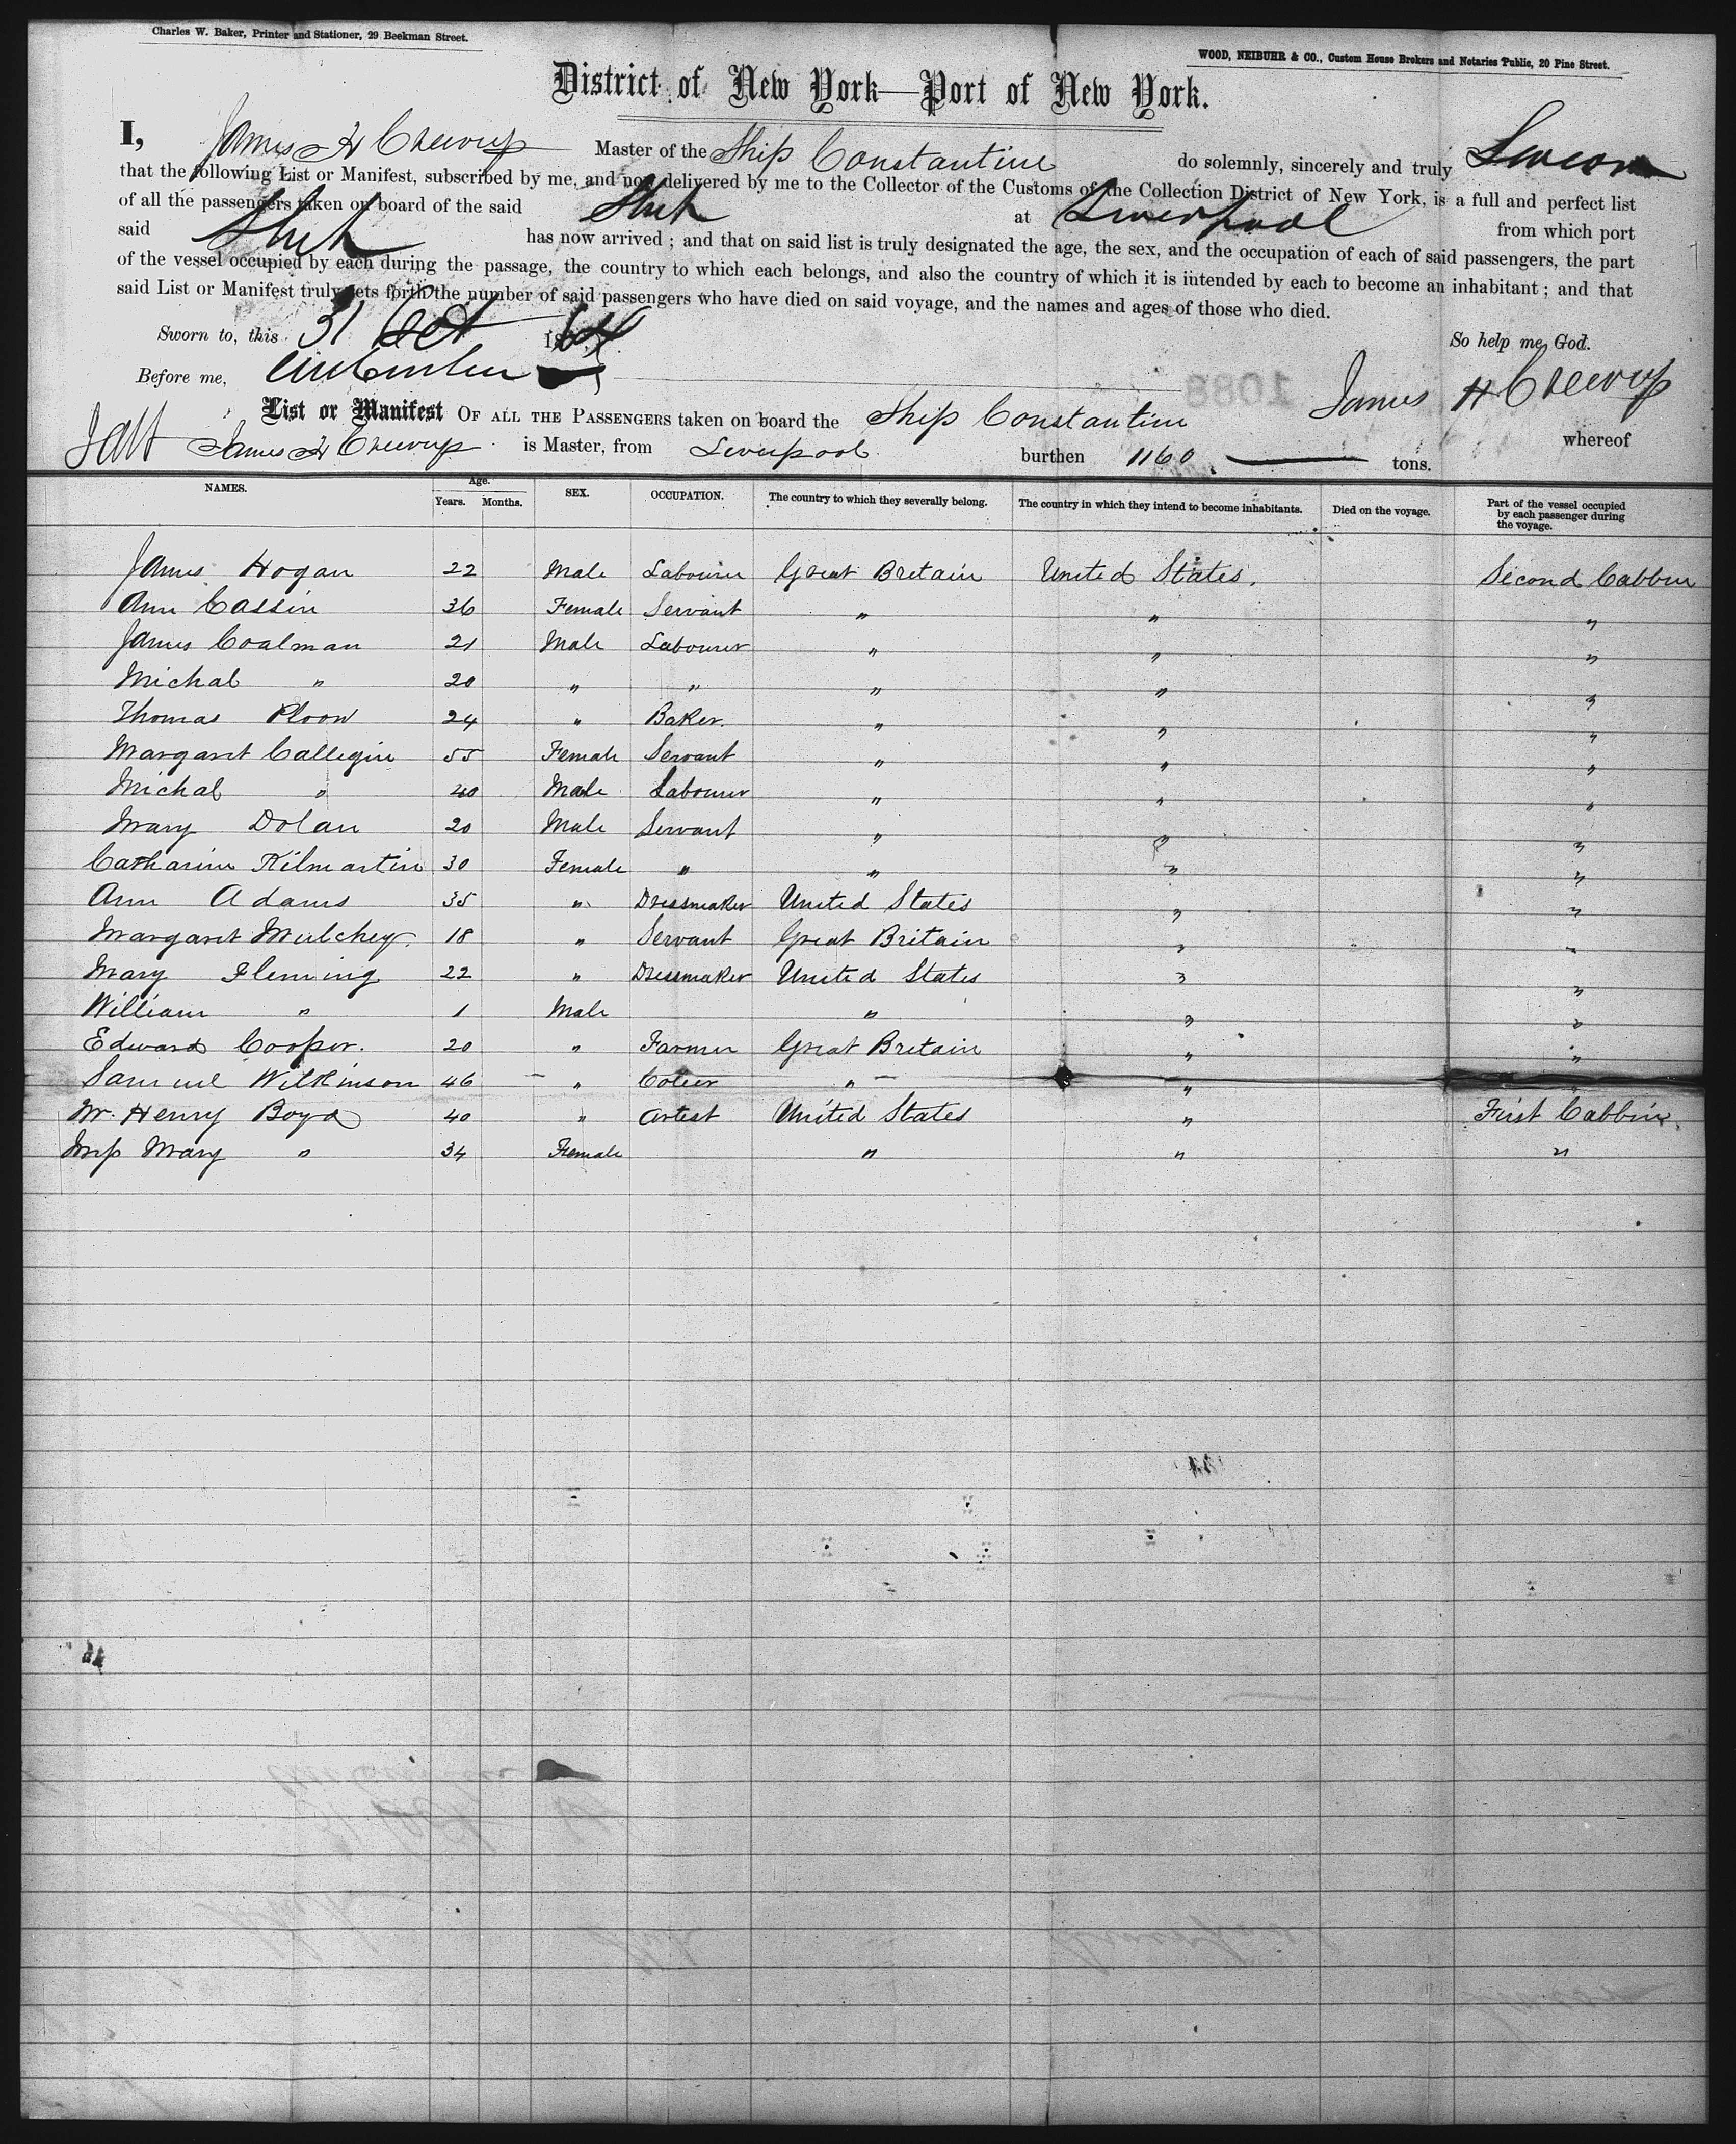 Charles W. Baker, Printer and Stationer, 29 Beekman Street.
WOOD, NEIBUHR & CO., Custom House Brokers and Notaries Public, 20 Pine Street.
District of New York—Port of New York.
I, James H Master of the Ship Constantine do solemnly, sincerely and truly Swear
that the following List or Manifest, subscribed by me, and now delivered by me to the Collector of the Customs of the Collection District of New York, is a full and perfect list
of all the passengers taken on board of the said Ship at Liverpool from which port
said Ship has now arrived ; and that on said list is truly designated the age, the sex, and the occupation of each of said passengers, the part
of the vessel occupied by each during the passage, the country to which each belongs, and also the country of which it is intended by each to become an inhabitant ; and that
said List or Manifest truly sets forth the number of said passengers who have died on said voyage, and the names and ages of those who died.
Sworn to, this 31 Oct 1864 So help me God.
Before me, James H
1088
List or Manifest OF ALL THE PASSENGERS taken on board the Ship Constantine whereof
James H is Master, from Liverpool burthen 1160 tons.
NAMES. Age. Years. Months. SEX. OCCUPATION. The country to which they severally belong. The country in which they intend to become inhabitants. Died on the voyage. Part of the vessel occupied by each passenger during the voyage.
James Hogan 22 Male Labourer Great Bretain United States. Second Cabbin
Ann Cassin 36 Female Servant " " "
James Coalman 21 Male Labourer " " "
Michal " 20 " " " " "
Thomas Ploow 24 " Baker. " " "
Margaret Callegin 55 Female Servant " " "
Michal " 20 Male Labourer " " "
Mary Dolan 20 Male Servant " " "
Catharine Kilmartin 30 Female " " " "
Ann Adams 35 " Dressmaker United States " "
Margaret Mulchey. 18 " Servant Great Britain " "
Mary Fleming 22 " Dressmaker United States " "
William " 1 Male " " "
Edward Cooper. 20 " Farmer Great Bretain " "
Samuel Wilkinson 46 " " " "
Mr. Henry Boyd 40 " Artest United States " First Cabbin.
Mrs Mary " 34 Female " " "